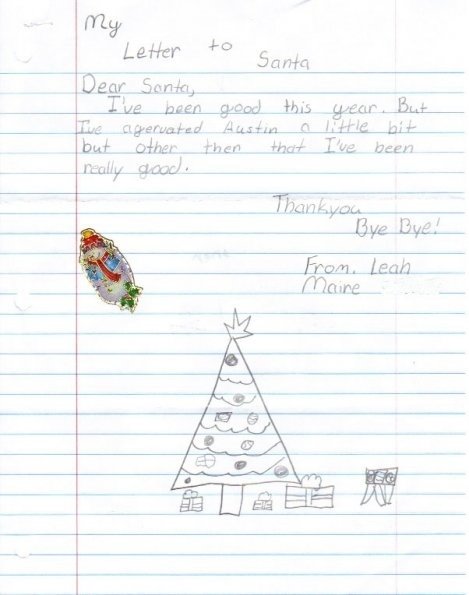 My
Letter to Santa
Dear Santa,
I've been good this year. But
I've agervated Austin a little bit
but other then that I've been
really good.
Thankyou
Bye Bye!
From, Leah
Maire